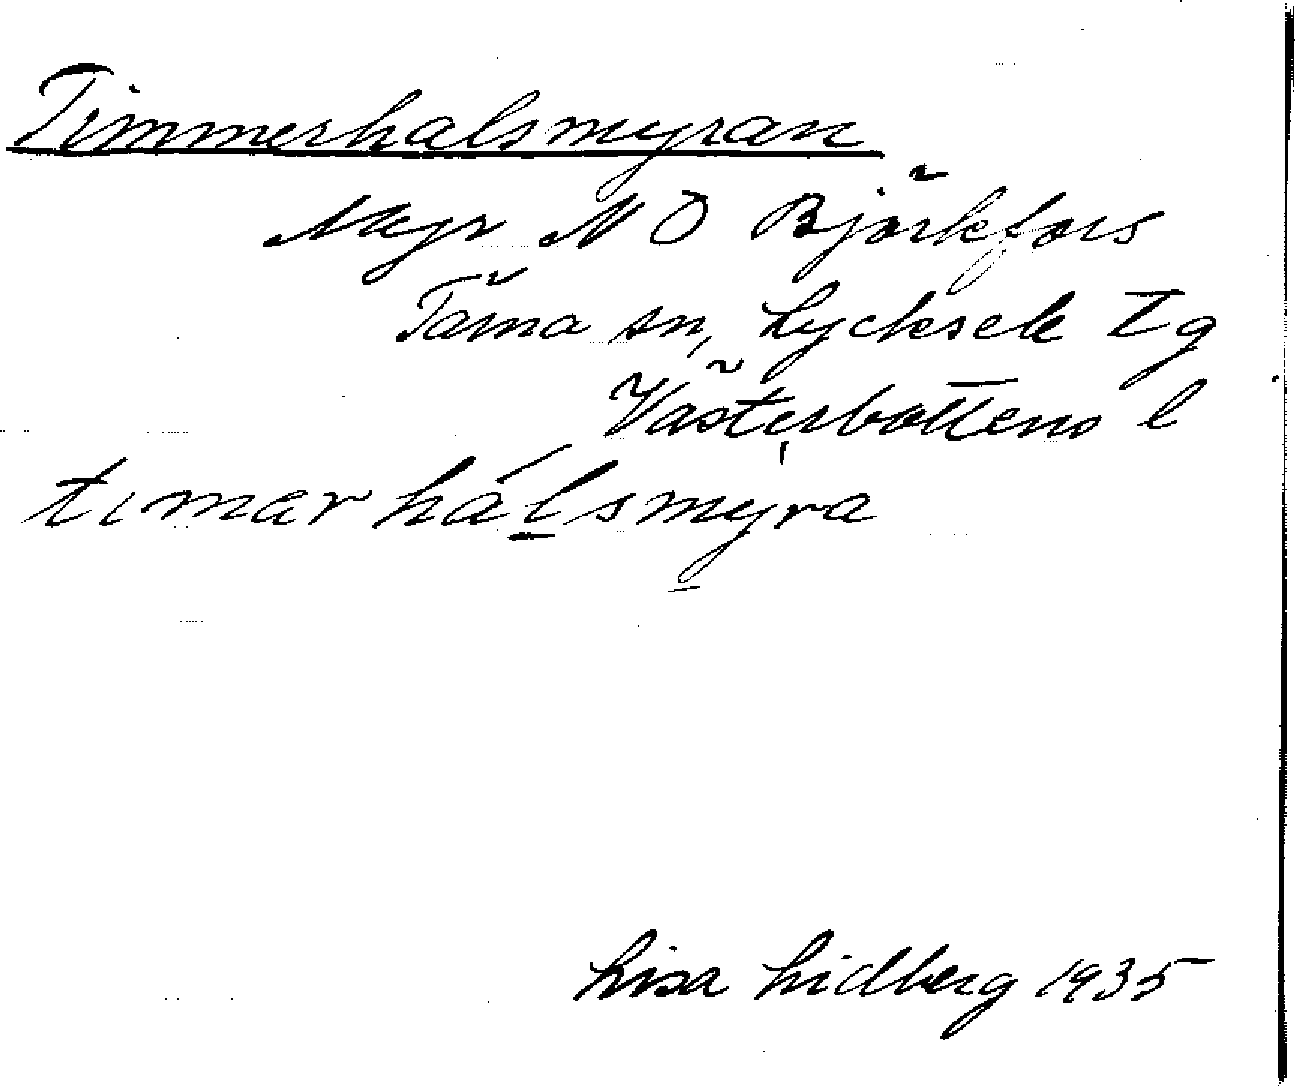 Timmerhalsmyran
Myr N O Björkfors
Tärna sn, Lycksele tg
Västerbottens l
timarhálsmyra
Lisa Lidberg 1935